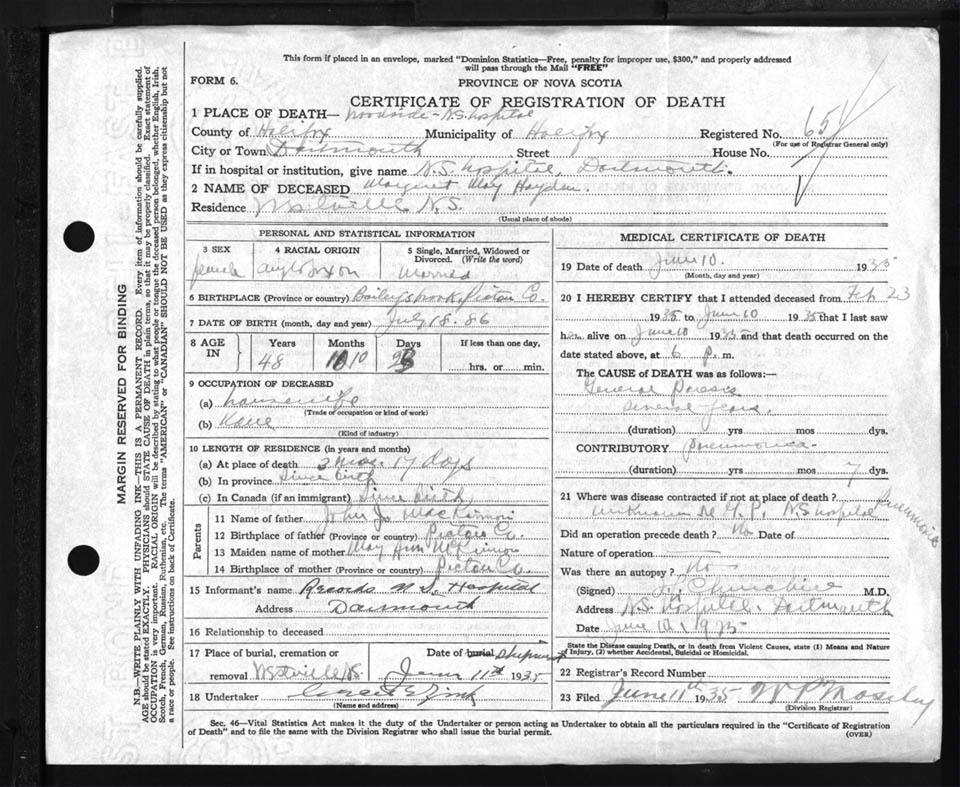 This form if placed in an envelope, marked "Dominion Statistics—Free, penalty for improper use, $300," and properly addressed
will pass through the Mail "FREE"
FORM 6.
PROVINCE OF NOVA SCOTIA
CERTIFICATE OF REGISTRATION OF DEATH
1 PLACE OF DEATH— Woodside - N.S. Hospital
County of Halifax Municipality of Halifax Registered No. 654
(For use of Registrar General only)
City or Town Dartmouth Street House No.
If in hospital or institution, give name N.S. Hospital, Dartmouth.
2 NAME OF DECEASED Margaret May Hayden.
Residence Westville N.S.
(Usual place of abode)
PERSONAL AND STATISTICAL INFORMATION
3 SEX 4 RACIAL ORIGIN 5 Single, Married, Widowed or
Divorced. (Write the word)
female anglo saxon married
6 BIRTHPLACE (Province or country) Bailey's brook, Pictou Co.
7 DATE OF BIRTH (month, day and year) July 18. 86
8 AGE IN Years Months Days If less than one day,
48 10 23 hrs. or min.
9 OCCUPATION OF DECEASED
(a) housewife
(Trade or occupation or kind of work)
(b)
(Kind of industry)
10 LENGTH OF RESIDENCE (in years and months)
(a) At place of death 3 mos. 17 days
(b) In province Since birth
(c) In Canada (if an immigrant) Since birth
Parents
11 Name of father John J. MacKinnon
12 Birthplace of father (Province or country) Pictou Co.
13 Maiden name of mother May Ann McKinnon
14 Birthplace of mother (Province or country) Pictou Co.
15 Informant's name Records N.S. Hospital
Address Dartmouth
16 Relationship to deceased
17 Place of burial, cremation or Date of burial Shipment
removal Westville N.S. June 11th 1935
18 Undertaker
(Name and address)
MEDICAL CERTIFICATE OF DEATH
19 Date of death June 10. 1935
(Month, day and year)
20 I HEREBY CERTIFY that I attended deceased from Feb 23
1935 to June 10 1935 that I last saw
her alive on June 10 1935 and that death occurred on the
date stated above, at 6 p. m.
The CAUSE of DEATH was as follows:—
General Paresis
several years.
(duration) yrs mos dys.
CONTRIBUTORY pneumonia
(duration) yrs mos 7 dys.
21 Where was disease contracted if not at place of death? Pneumonia
unknown N.S. Hospital
Did an operation precede death? No Date of
Nature of operation
Was there an autopsy? No
(Signed) M.D.
Address N.S. Hospital. Dartmouth
Date June 10, 1935
State the Disease causing Death, or in death from Violent Causes, state (1) Means and Nature
of Injury, (2) whether Accidental, Suicidal or Homicidal.
22 Registrar's Record Number
23 Filed June 11th 1935 W P Moseley
(Division Registrar)
Sec. 46—Vital Statistics Act makes it the duty of the Undertaker or person acting as Undertaker to obtain all the particulars required in the "Certificate of Registration
of Death" and to file the same with the Division Registrar who shall issue the burial permit.
(OVER)
MARGIN RESERVED FOR BINDING
N.B.—WRITE PLAINLY WITH UNFADING INK—THIS IS A PERMANENT RECORD. Every item of information should be carefully supplied.
AGE should be stated EXACTLY. PHYSICIANS should STATE CAUSE OF DEATH in plain terms, so that it may be properly classified. Exact statement of
OCCUPATION is very important. RACIAL ORIGIN will be described by stating to what people or tongue the deceased person belonged, whether English, Irish,
Scotch, French, German, Russian, Ruthenian, etc. The terms "AMERICAN" or "CANADIAN" SHOULD NOT BE USED as they express citizenship but not
a race or people. See instructions on back of Certificate.